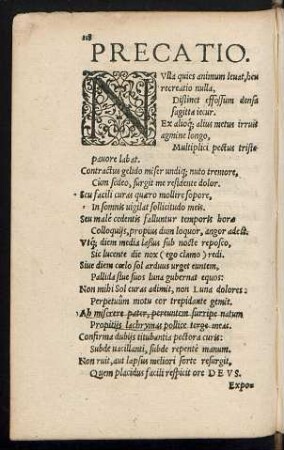 218
PRECATIO.
NVlla quies animum leuat, heu
recreatio nulla,
Distinet effossum densa
sagitta iecur.
Ex alioq; alius metus irruit
agmine longo,
Multiplici pectus triste
pauore labat.
Contractus gelido miser undiq; nuto tremore,
Cùm sedeo, surgit me residente dolor.
Seu facili curas quæro mollire sopore,
In somnis uigilat sollicitudo meis.
Seu malè cedentis falluntur temporis horæ
Colloquijs, propius dum loquor, angor adest.
Vsq; diem media lassus sub nocte reposco,
Sic lucente die nox (ego clamo) redi.
Siue diem cœlo sol arduus urget euntem,
Pallida siue suos luna gubernat equos:
Non mihi Sol curas adimit, non Luna dolores:
Perpetuùm motu cor trepidante gemit.
Ab miserere pater, pereuntem surripe natum
Propitijs lachrymas pollice terge meas.
Confirma dubijs titubantia pectora curis:
Subde uacillanti, subde repentè manum.
Non ruit, aut lapsus meliori sorte resurgit,
Quem placidus facili respicit ore DEVS.
Expo=